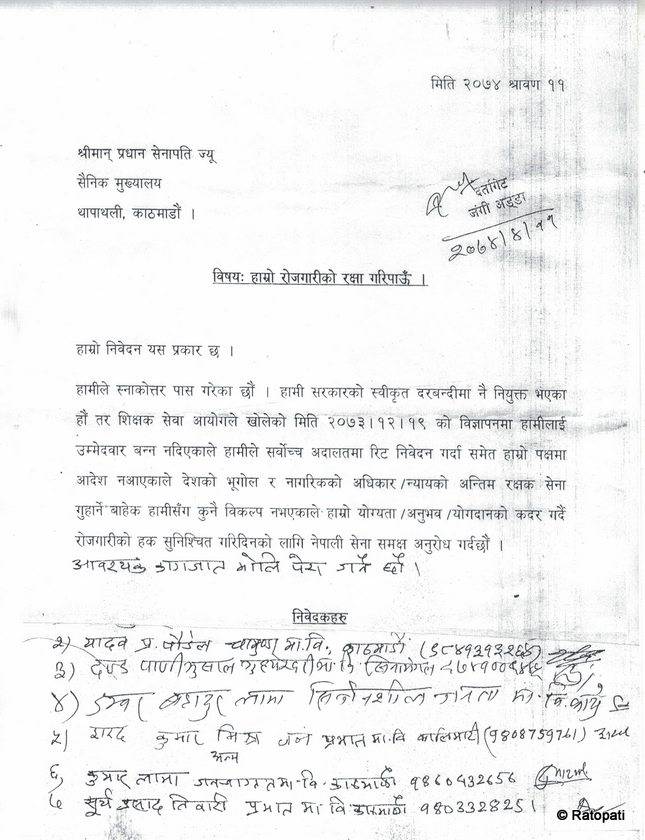 मिति २०७४ श्रावण ११
श्रीमान् प्रधान सेनापति ज्यू
सैनिक मुख्यालय
थापाथली, काठमाडौं ।
दर्तागेट
जंगी अड्डा
२०७४/४/११
विषयः हाम्रो रोजगारीको रक्षा गरिपाऊँ ।
हाम्रो निवेदन यस प्रकार छ ।
हामीले स्नाकोत्तर पास गरेका छौं । हामी सरकारको स्वीकृत दरबन्दीमा नै नियुक्त भएका
हौं तर शिक्षक सेवा आयोगले खोलेको मिति २०७३।१२।१९ को विज्ञापनमा हामीलाई
उम्मेदवार बन्न नदिएकाले हामीले सर्वोच्च अदालतमा रिट निवेदन गर्दा समेत हाम्रो पक्षमा
आदेश नआएकाले देशको भूगोल र नागरिकको अधिकार/न्यायको अन्तिम रक्षक सेना
गुहार्ने बाहेक हामीसँग कुनै विकल्प नभएकाले हाम्रो योग्यता/अनुभव/योगदानको कदर गर्दै
रोजगारीको हक सुनिश्चित गरिदिनको लागि नेपाली सेना समक्ष अनुरोध गर्दछौं ।
आवश्यक कागजात भोलि पेश गर्ने छौं ।
निवेदकहरु
२) यादव प्र. पौडेल चामुण्डा मा.वि. काठमाडौं
३) दण्ड पाणी भुसाल
४) डम्बर बहादुर लामा मा. वि.
५) शरद कुमार मिश्र प्रभात मा.वि कालिमाटी (9808759761)
६) कुमार लामा मा.वि. काठमाडौं 9860432656
७ सूर्य प्रसाद तिवारी प्रभात मा वि काठमाडौं 9803328251
© Ratopati